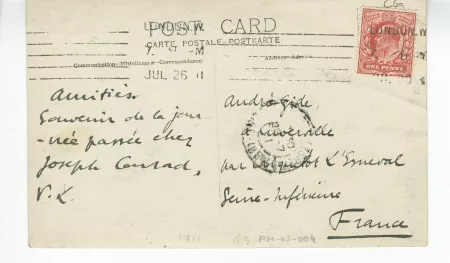 POST CARD
CARTE POSTALE-POSTKARTE
LONDON.W.
JUL 26 11
Communication-Mitteilung-Correspondance.
LONDON.W
ONE PENNY
Amitiés
Souvenir de la jour
-née passée chez
Joseph Conrad,
V. L.
André Gide,
à Cuverville
par Criquetot L'Esneval
Seine-Inférieure
France
1911